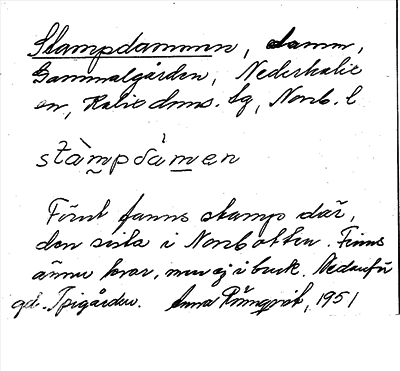 Stampdammen, damm,
Gammalgården, Nederkalix
en, Kalix dnns. lg, Norrb. l
stàmpdámen
Förut fanns stamp där,
den sista i Norrbotten. Finns
ännu kvar, men ej i bruk. Nedanför
gd. Spigården. Anna 1951